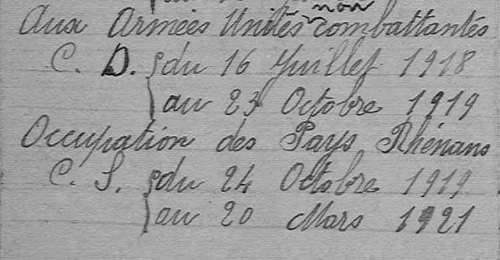 Aux Armées Unités non combattantes
C. D. { du 16 Juillet 1918
au 23 Octobre 1919
Occupation des Pays Rhénans
C. S. { du 24 Octobre 1919
au 20 Mars 1921